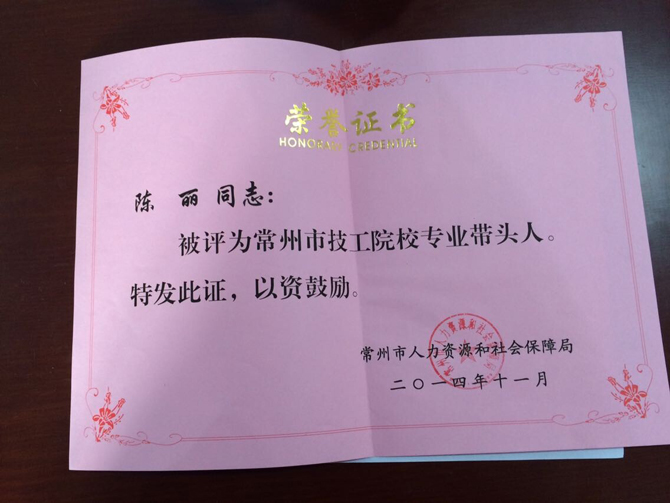 荣誉证书
HONORARY CREDENTIAL
陈 丽 同志：
被评为常州市技工院校专业带头人。
特发此证，以资鼓励。
常州市人力资源和社会保障局
二〇一四年十一月